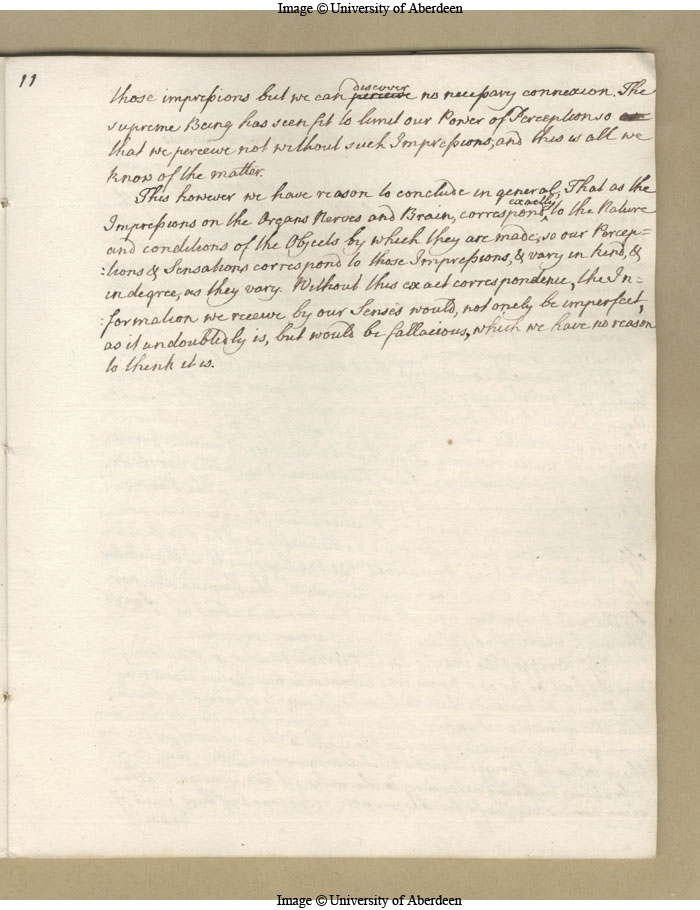 Image © University of Aberdeen
11
those impressions but we can perceive discover no necessary connexion. The
supreme Being has seen fit to limit our Power of Perception so
that we perceive not without such Impressions, and this is all we
know of the matter.
This however we have reason to conclude in general, That as the
Impressions on the Organs Nerves and Brain, correspond exactly to the Nature
and conditions of the Objects by which they are made; so our Percep=
:tions & Sensations correspond to those Impressions, & vary in kind, &
in degree, as they vary. Without this exact correspondence, the In=
:formation we receive by our Senses would, not onely be imperfect,
as it undoubtedly is, but would be fallacious, which we have no reason
to think it is.
Image © University of Aberdeen